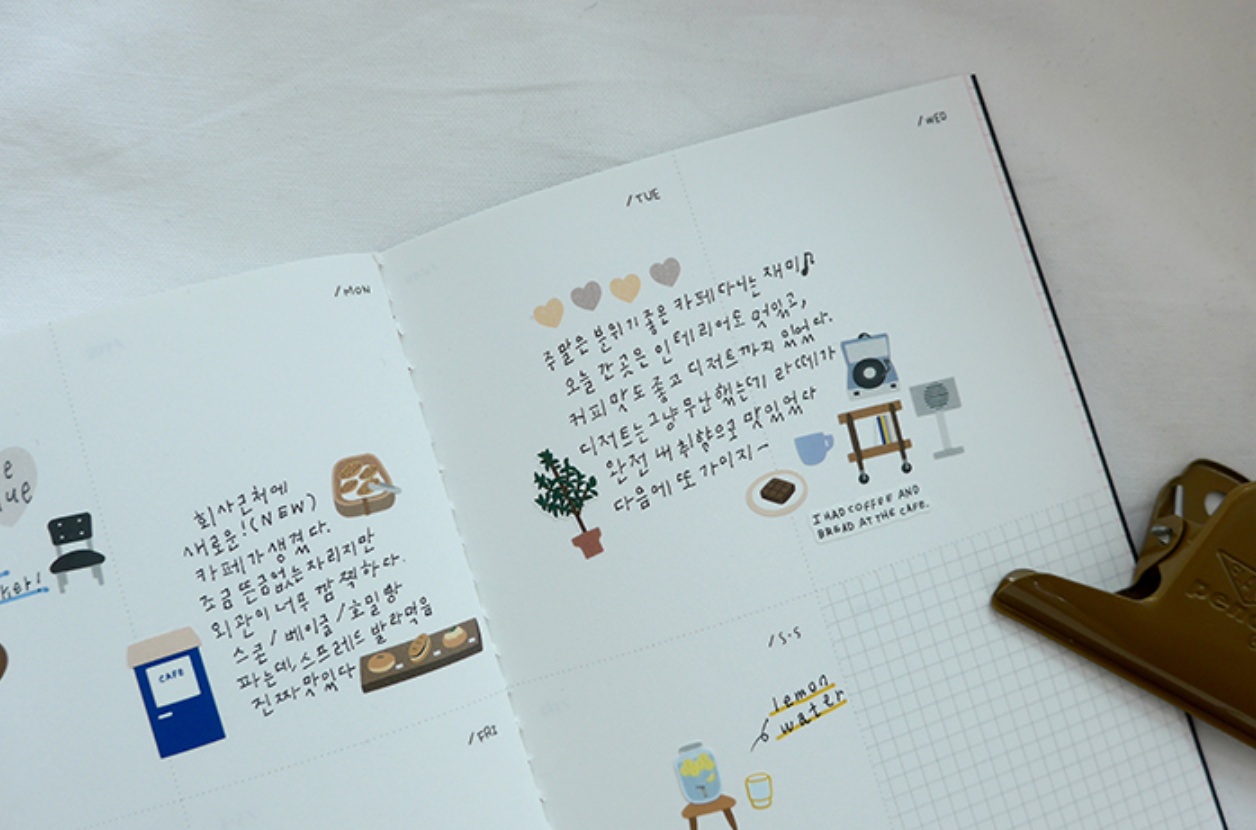 /MON
회사근처에
새로운!(NEW)
카페가 생겼다.
조금 뜬금없는 자리지만
외관이 너무 깜찍하다.
스콘/베이글/호밀빵
파는데, 스프레드 발라먹음
진짜 맛있다
CAFE
/FRI
/TUE
/WED
주말은 분위기 좋은 카페 다니는 재미♪
오늘 간곳은 인테리어도 멋있고,
커피맛도 좋고 디저트까지 있었다.
디저트는 그냥 무난했는데 라떼가
완전 내 취향으로 맛있었다
다음에 또 가야지~
I HAD COFFEE AND
BREAD AT THE CAFE.
/S·S
lemon
water